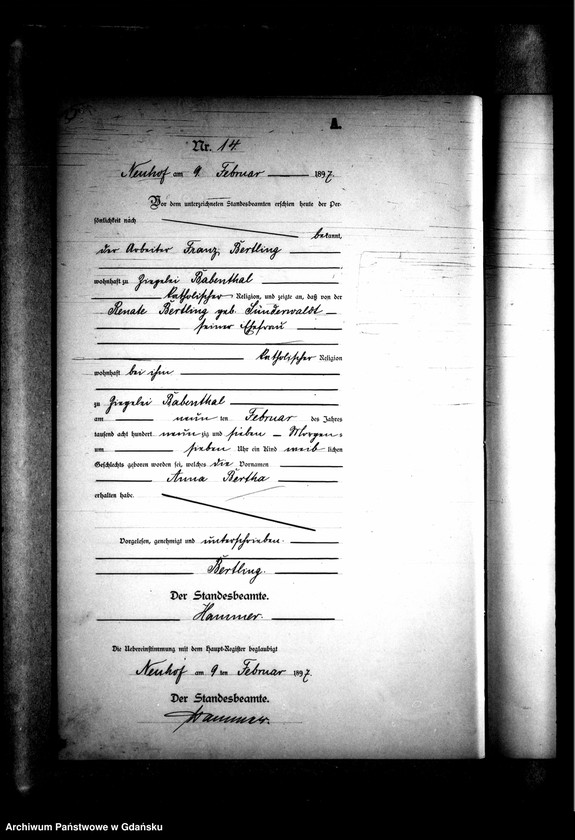 A.
Nr. 14.
Neuhof am 9. Februar 1897.
Vor dem unterzeichneten Standesbeamten erschien heute der Per-
sönlichkeit nach
bekannt,
der Arbeiter Franz Bertling
wohnhaft zu Ziegelei Babenthal
katholischer Religion, und zeigte an, daß von der
Renate Bertling geb. Sünderwaldt
seiner Ehefrau
katholischer Religion
wohnhaft bei ihm
zu Ziegelei Babenthal
am neun ten Februar des Jahres
tausend acht hundert neun zig und sieben Morgens
um sieben Uhr ein Kind weib lichen
Geschlechts geboren worden sei, welches die Vornamen
Anna Bertha
erhalten habe.
Vorgelesen, genehmigt und unterschrieben.
Bertling.
Der Standesbeamte.
Hammer.
Die Uebereinstimmung mit dem Haupt-Register beglaubigt
Neuhof am 9 ten Februar 1897.
Der Standesbeamte.
Hammer.
Archiwum Państwowe w Gdańsku